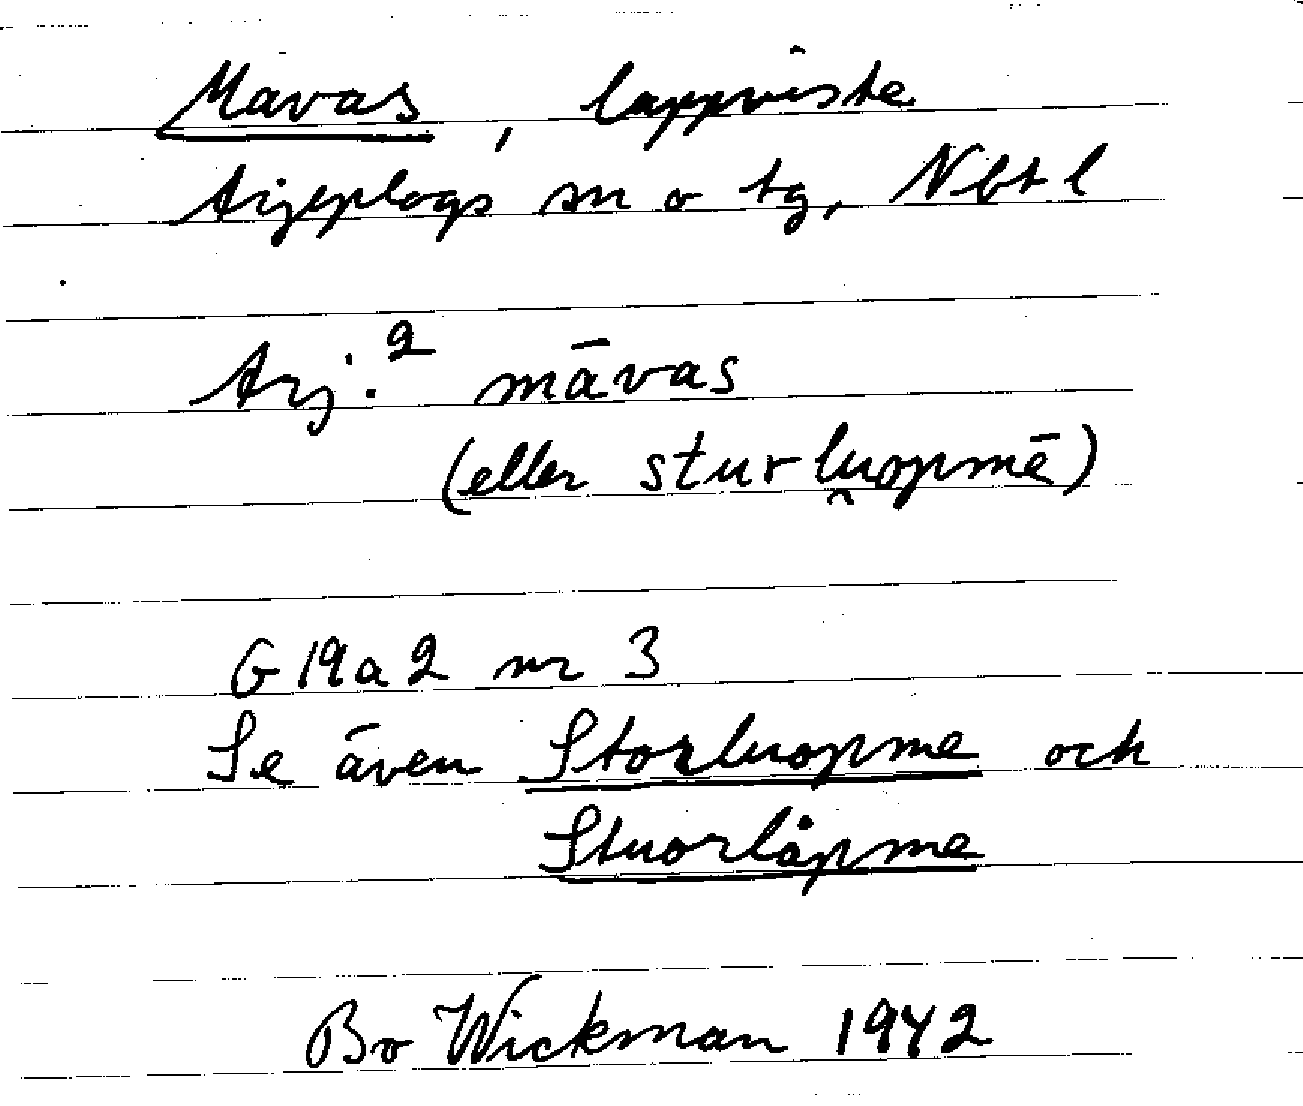 Mavas, lappviste
Arjeplogs sn o tg, Nbtl
Arj.² māvas
(eller stur lu̯opmē)
G 19 a 2 nr 3
Se även Storluopme och
Stuorlåpme
Bo Wickman 1942